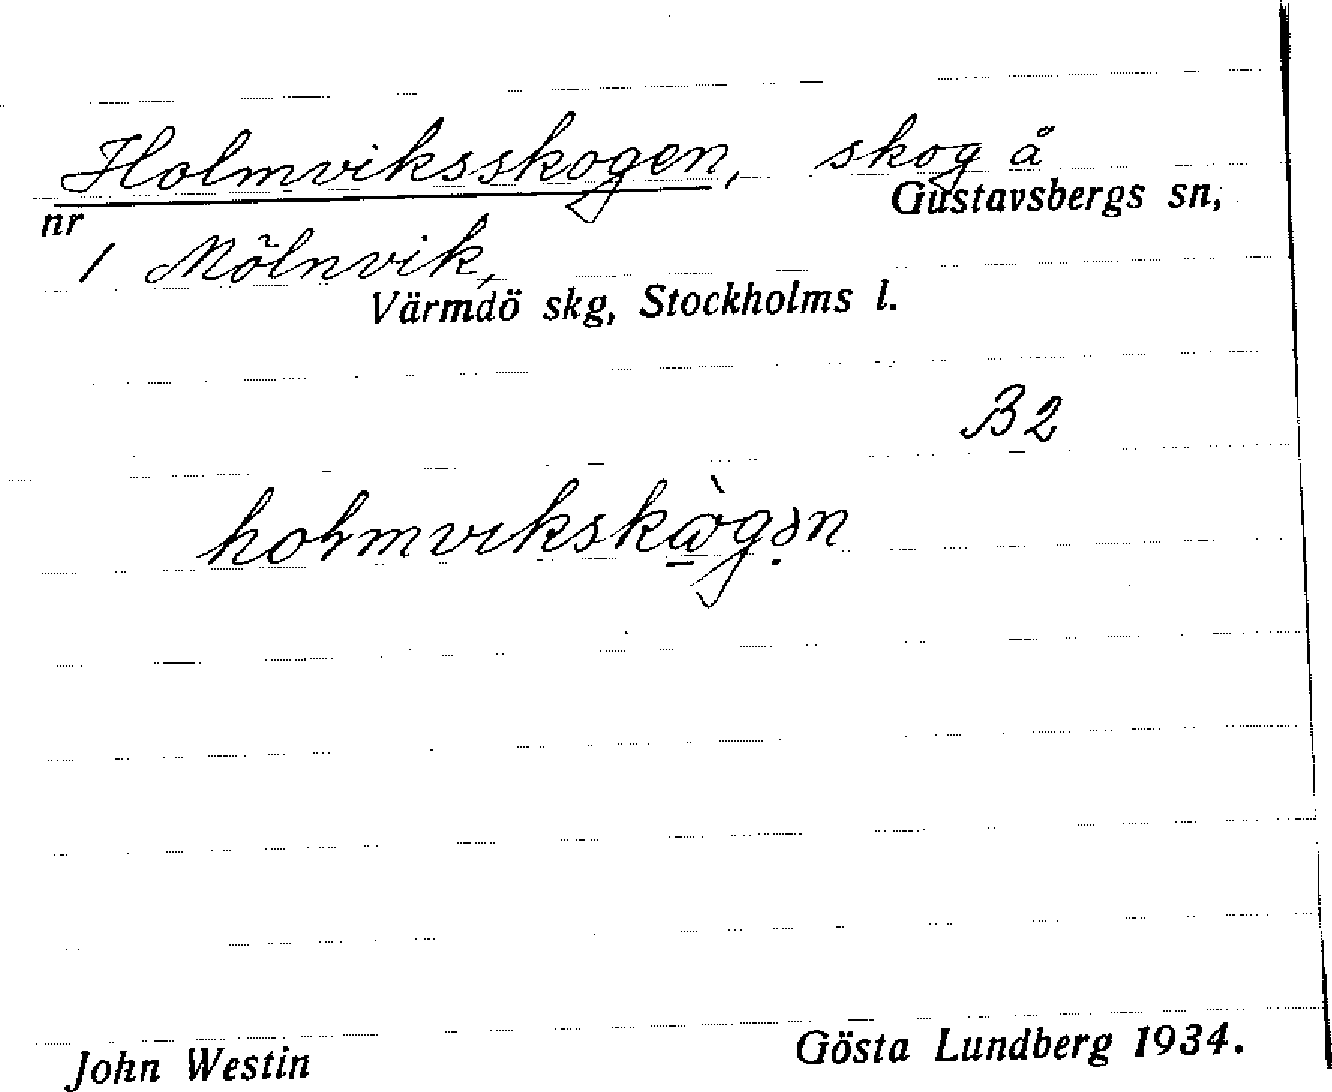 Holmviksskogen, skog å
Gustavsbergs sn,
nr
1 Mölnvik,
Värmdö skg, Stockholms l.
B2
John Westin
Gösta Lundberg 1934.